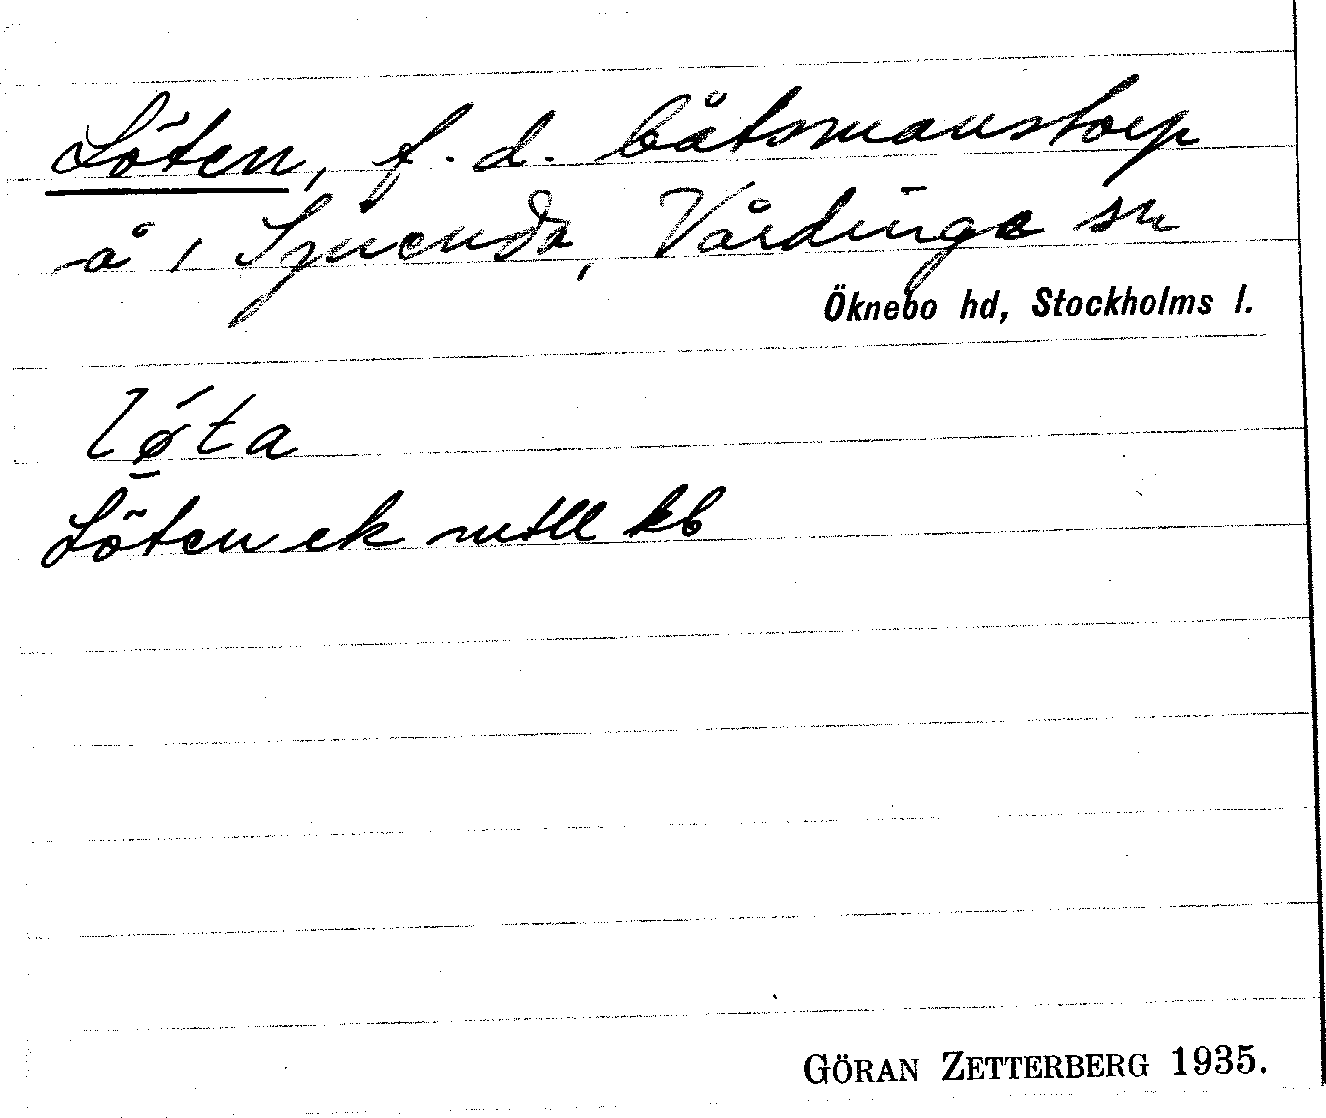 Löten, f. d. båtsmanstorp
å 1 Sjuenda, Vårdinge sn
Öknebo hd, Stockholms l.
lǿ̱ta
Löten ek mtll kb
GÖRAN ZETTERBERG 1935.